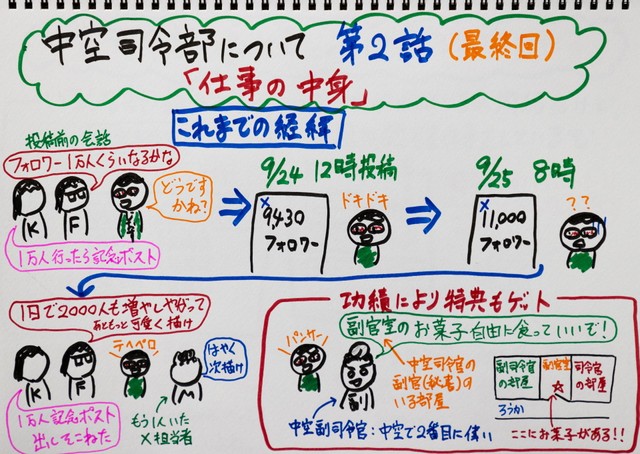 中空司令部について 第2話(最終回)
「仕事の中身」
これまでの経緯
投稿前の会話
フォロワー1万人くらいなるかな
どうですかね?
K
F
1万人行ったら記念ポスト
9/24 12時投稿
X
9,430
フォロワー
ドキドキ
9/25 8時
X
11,000
フォロワー
??
1日で2000人も増やしやがって
あともっと可愛く描け
テヘペロ
はやく
次描け
K
F
M
1万人記念ポスト
出しそこねた
もう1人いた
X担当者
功績により特典もゲット
副官室のお菓子自由に食っていいぞ!
バンザーイ
副
中空司令官の
副官(秘書)の
いる部屋
中空副司令官:中空で2番目に偉い
副司令官
の部屋
副官室
司令官
の部屋
ろうか
ここにお菓子がある!!